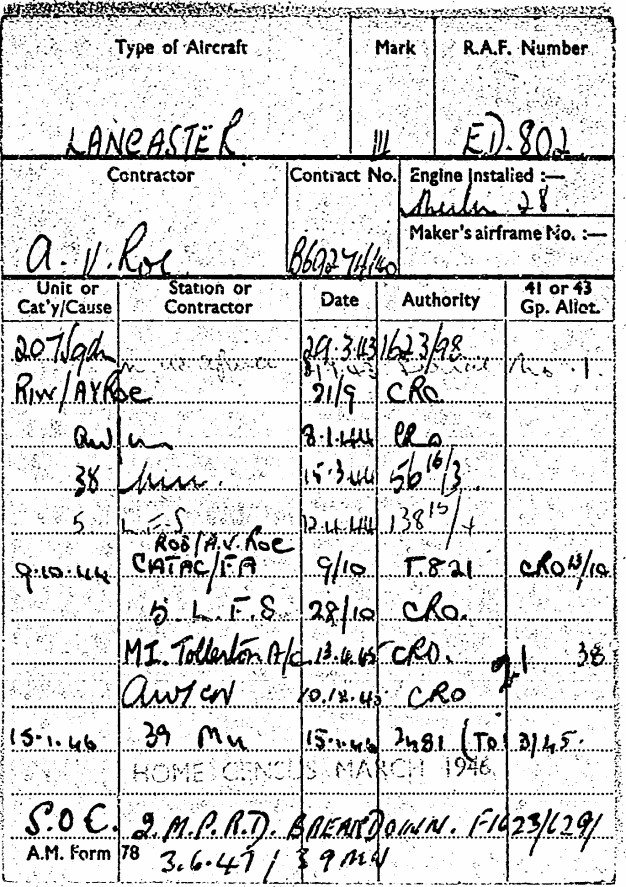 Type of Aircraft Mark R.A.F. Number
LANCASTER III ED.802
Contractor Contract No. Engine Installed :—
Merlin 28.
Maker's airframe No. :—
A. V. Roe B69274/40
Unit or Cat'y/Cause Station or Contractor Date Authority 41 or 43 Gp. Allot.
207 Sqdn 29.3.43 1623/98
RIW/AV Roe 21/9 CRO
8.1.44 CRO
38 15.3.44 56 16/3
5 L F S 12.4.44 138 15/4
ROS/A.V. ROE
9.10.44 CATAC/FA 9/10 T.821 CRO 13/10
5. L. F. S 28/10 CRO.
MI. Tollerton A/C 13.4.45 CRO. 38
AW/CN 10.12.45 CRO
15.1.46 39 MU 15.1.46 2481 (TO) 3/45.
HOME CENSUS MARCH 1946
S.O.C. 2. M.P.R.D. BREAKDOWN. F1623/629/
A.M. Form 78 3.6.47 / 39 MU